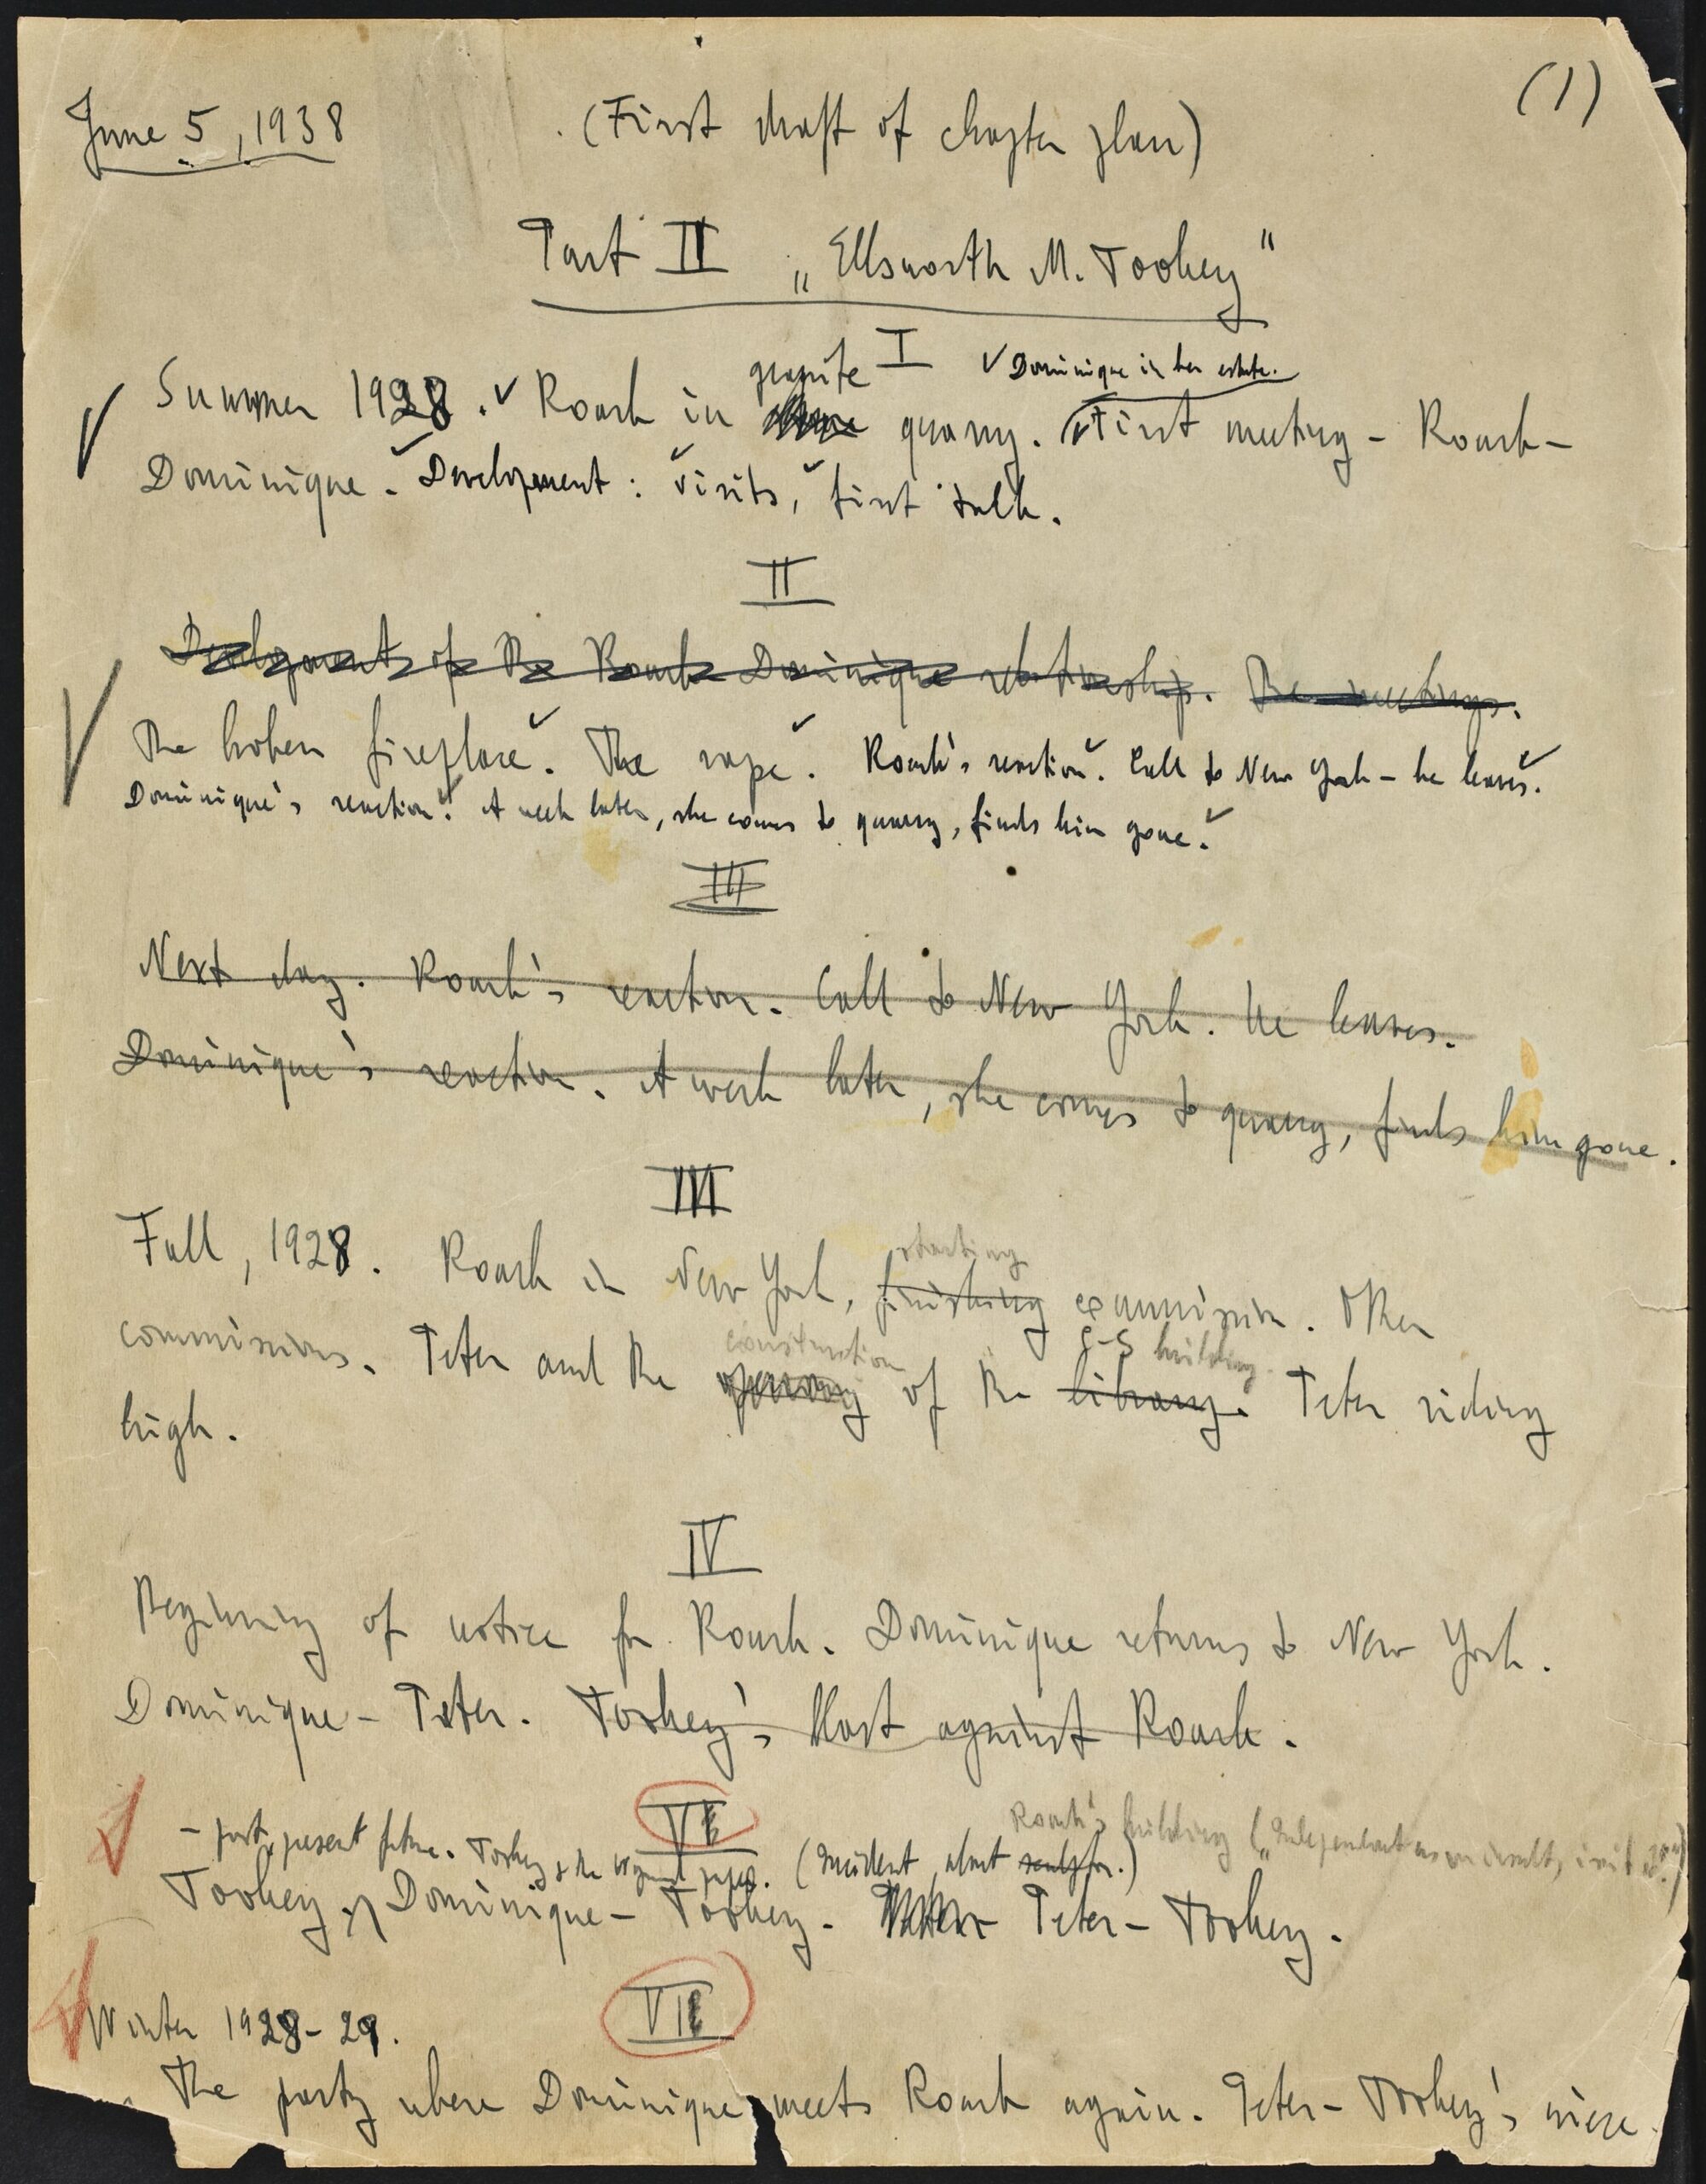 (1)
June 5, 1938
(First draft of chapter plan)
Part II „Ellsworth M. Toohey"
I
✓ Dominique in her estate.
granite
Summer 1928. ✓ Roark in quarry. ✓ First meeting – Roark –
Dominique. ✓ Development: visits, first talk.
II
Development of the Roark Dominique relationship. The meetings.
The broken fireplace. The rape. Roark's reaction. Call to New York – he leaves.
Dominique's reaction. A week later, she comes to quarry, finds him gone.
III
Next day. Roark's reaction. Call to New York. He leaves.
Dominique's reaction. A week later, she comes to quarry, finds him gone.
III
starting
Fall, 1928. Roark in New York, finishing commission. Other
construction C-S building.
commissions. Peter and the opening of the library. Peter riding
high.
IV
Beginning of notice for Roark. Dominique returns to New York.
Dominique – Peter. Toohey's blast against Roark.
V
Roark's building („Independent as an insult, isn't it?")
– past, present, future. Toohey & the Wynand papers. (Incident about sculptor.)
Toohey. Dominique – Toohey. Peter – Toohey.
Winter 1928–29.
VI
The party where Dominique meets Roark again. Peter – Toohey's niece.